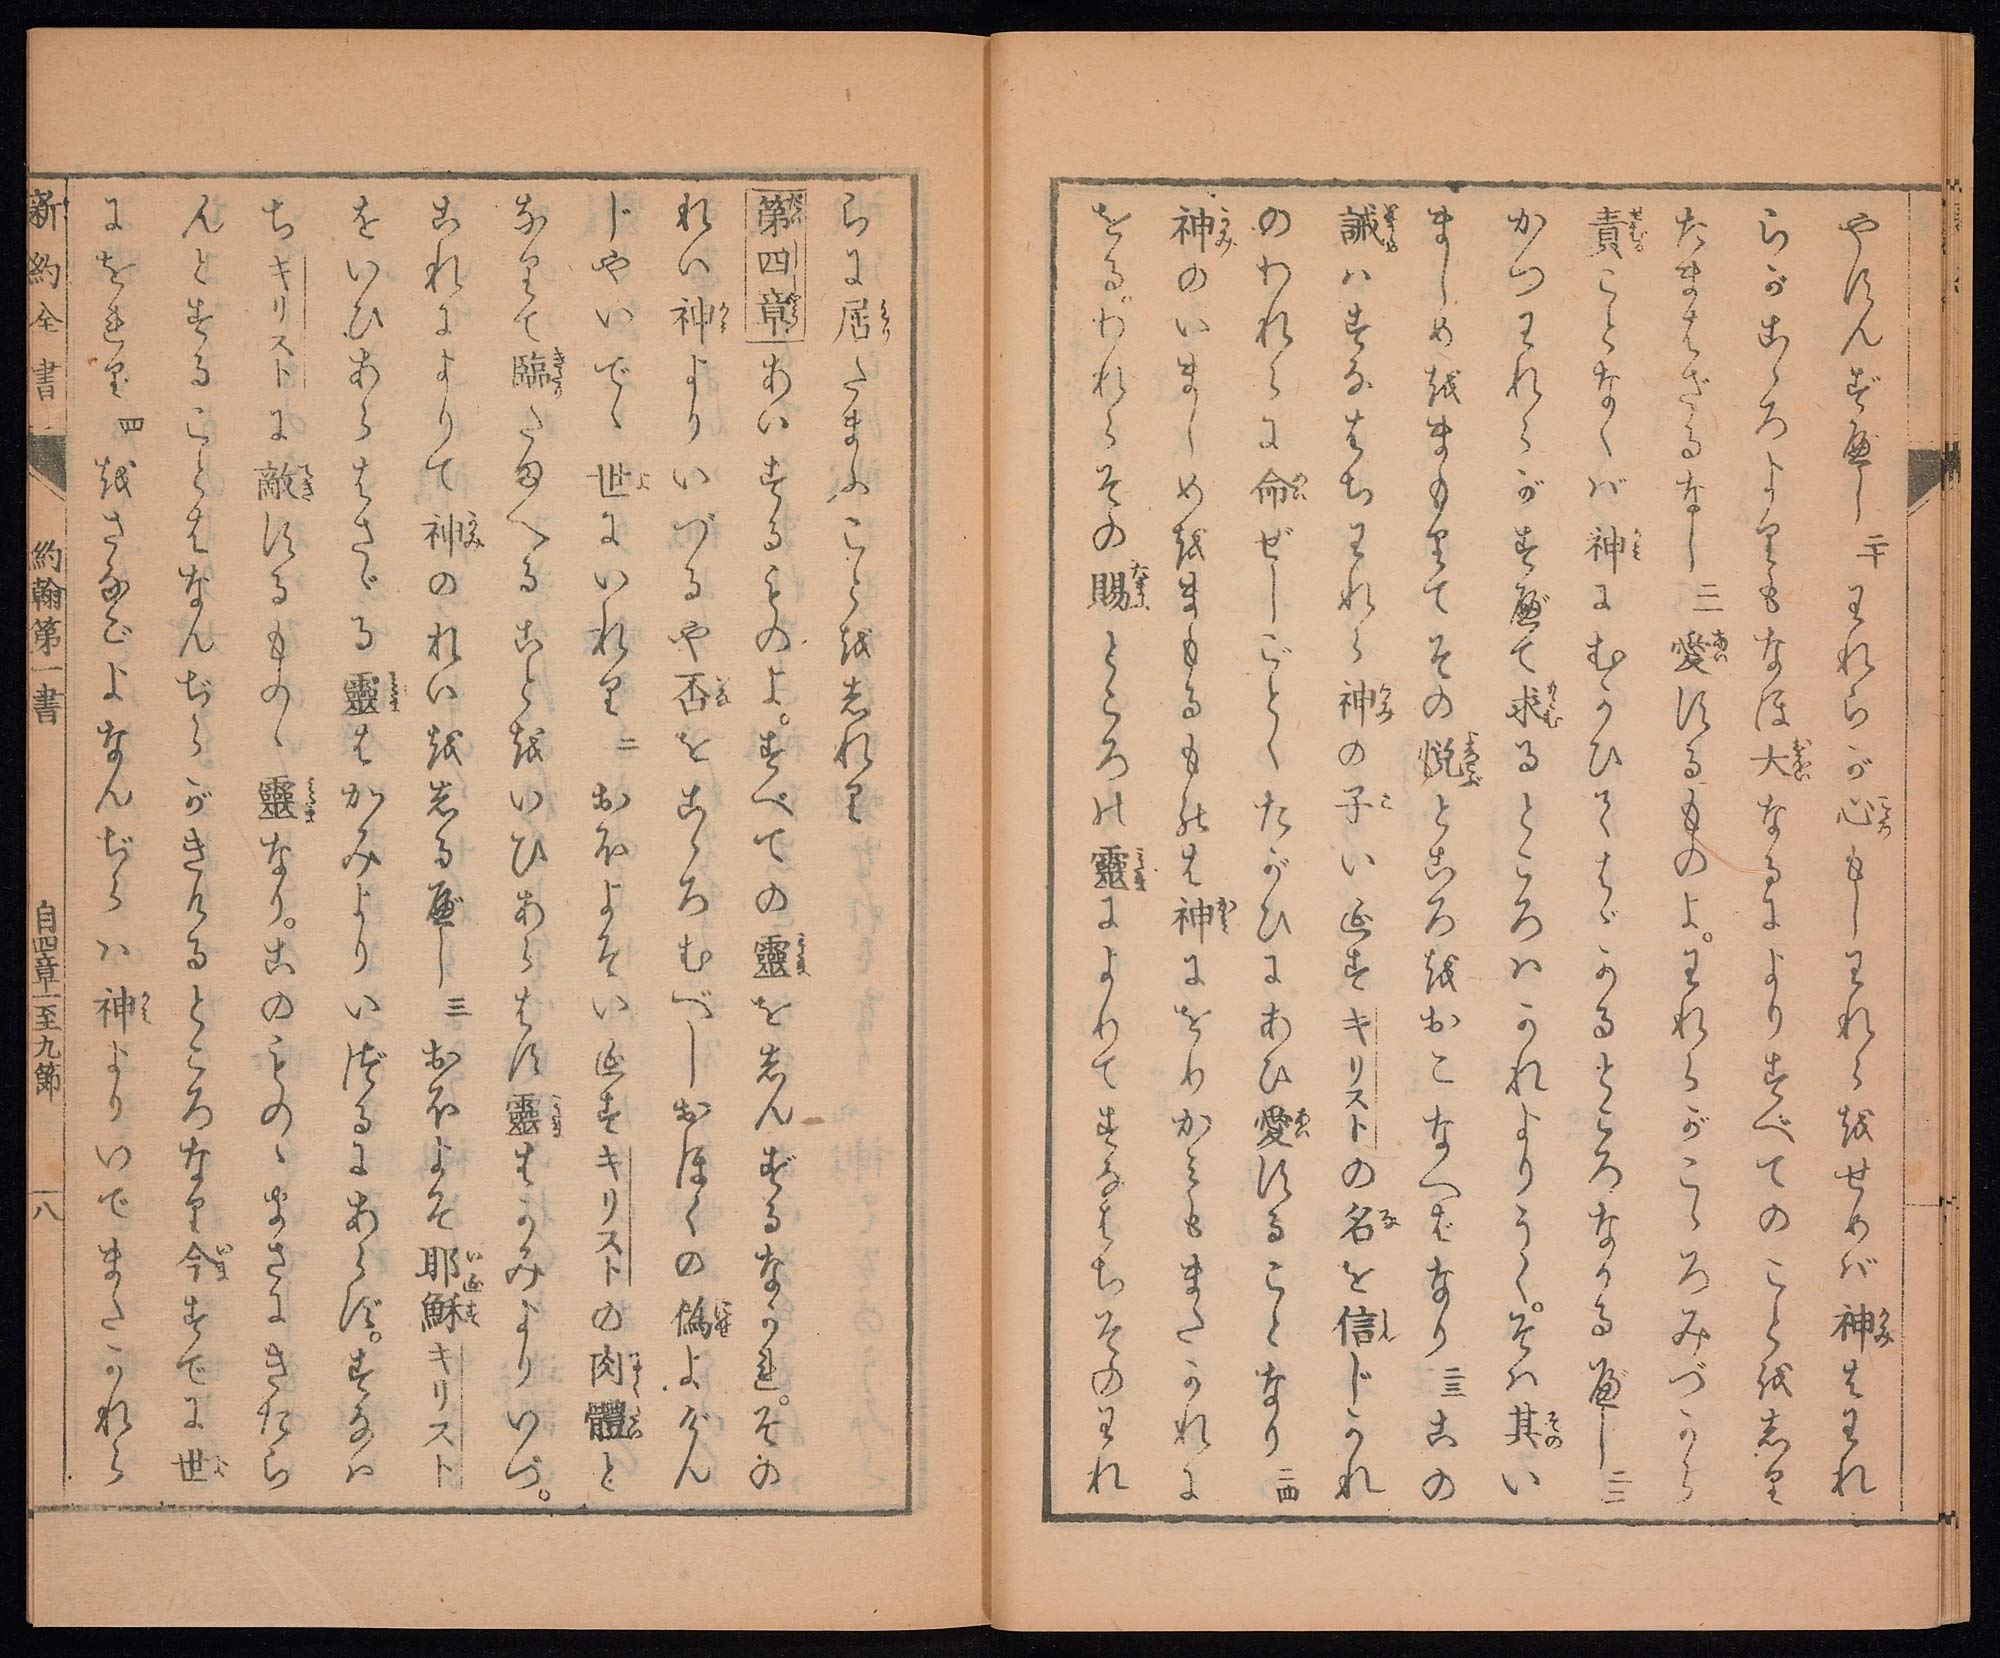 やすんず べし 二十 われらが心もしわれらをせめバ神はわれ
らがこゝろよりもなほ大なるによりすべてのことをしり
たまはざるなし 二一 愛するものよ。われらがこゝろみづから
責ことなくバ神にむかひてはゞかるところなかるべし 二二
かつわれらがすべて求るところハかれよりうく。そハ其い
ましめをまもりてその悦ところをおこなへばなり 二三 この
誡ハすなはちわれら神の子いゑすキリストの名を信じかれ
のわれらに命ぜしごとくたがひにあひ愛することなり 二四
神のいましめをまもるものは神にをりかみもまたかれに
をる。われらその賜ところの靈によりてすなはちそのわれ
らに居たまふことをしれり
第四章 あいするものよ。すべての靈をしんずるなかれ。その
れい神よりいづるや否をこゝろむべしおほくの僞よげん
じやいでゝ世にいれり 二 おほよそいゑすキリストの肉體と
なりて臨たまへることをいひあらはす靈はかみよりいづ。
これによりて神のれいをしるべし 三 おほよそ耶穌キリスト
をいひあらはさゞる靈はかみよりいづるにあらず。すなハ
ちキリストに敵するものゝ靈なり。このものゝまさにきたら
んとすることはなんぢらがきけるところなり今すでに世
にをれり 四 をさなごよなんぢらハ神よりいでまたかれら
新約全書 約翰第一書 自四章一至九節 八